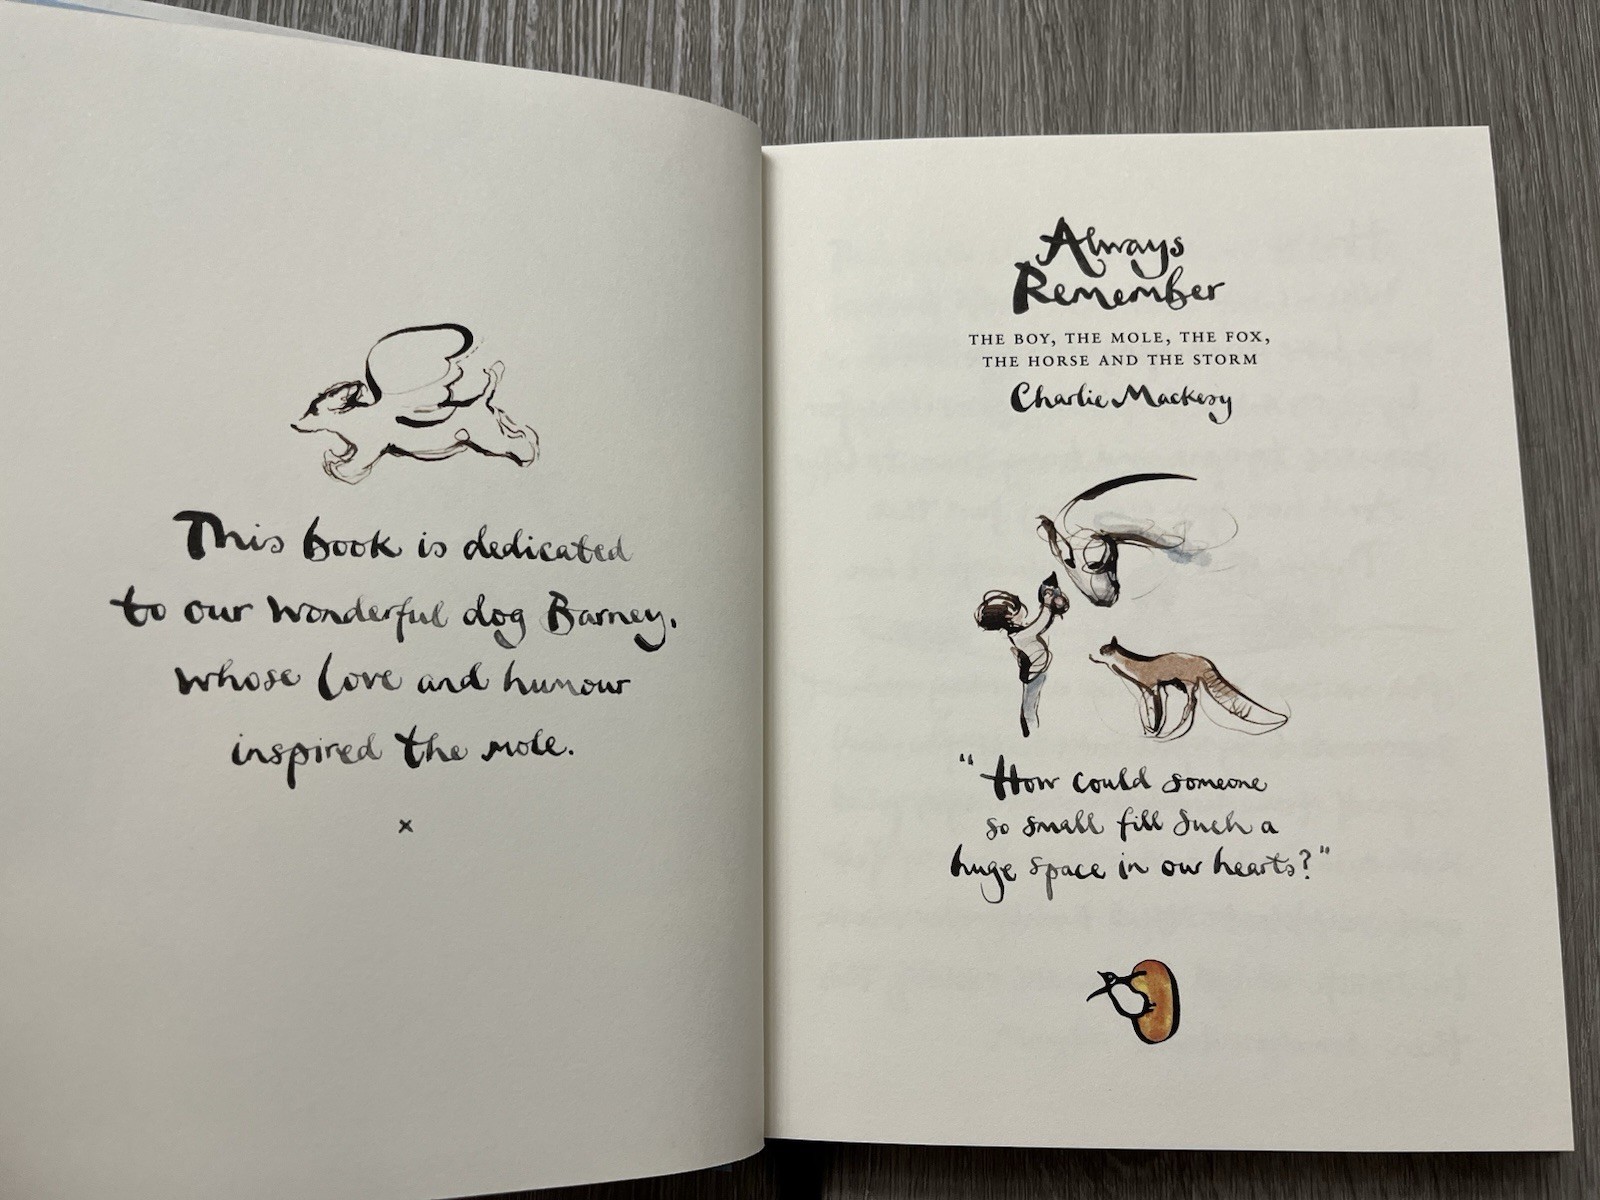 This book is dedicated
to our wonderful dog Barney,
whose love and humour
inspired the mole.
x
Always
Remember
THE BOY, THE MOLE, THE FOX,
THE HORSE AND THE STORM
Charlie Mackesy
"How could someone
so small fill such a
huge space in our hearts?"